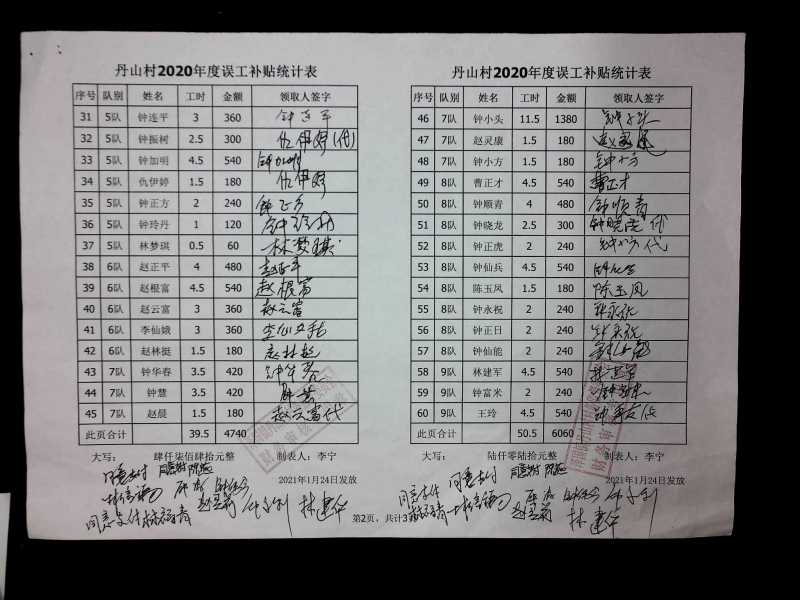 丹山村2020年度误工补贴统计表
序号 队别 姓名 工时 金额 领取人签字
31 5队 钟连平 3 360 钟连平
32 5队 钟振树 2.5 300 仇伊婷(代)
33 5队 钟加明 4.5 540 钟加明
34 5队 仇伊婷 1.5 180 仇伊婷
35 5队 钟正方 2 240 钟正方
36 5队 钟玲丹 1 120 钟玲丹
37 5队 林梦琪 0.5 60 林梦琪
38 6队 赵正平 4 480 赵正平
39 6队 赵根富 4.5 540 赵根富
40 6队 赵云富 3 360 赵云富
41 6队 李仙娥 3 360 李仙娥
42 6队 赵林挺 1.5 180 赵林挺
43 7队 钟华春 3.5 420 钟华春
44 7队 钟慧 3.5 420 钟慧
45 7队 赵晨 1.5 180 赵云富代
此页合计 39.5 4740
大写: 肆仟柒佰肆拾元整 制表人:李宁
2021年1月24日发放
同意支付
同意支付 林建仁
丹山村2020年度误工补贴统计表
序号 队别 姓名 工时 金额 领取人签字
46 7队 钟小头 11.5 1380 钟小头
47 7队 赵灵康 1.5 180
48 7队 钟小方 1.5 180 钟小方
49 8队 曹正才 4.5 540 曹正才
50 8队 钟顺青 4 480 钟顺青
51 8队 钟晓龙 2.5 300 钟晓虎代
52 8队 钟正虎 2 240 代
53 8队 钟仙兵 4.5 540
54 8队 陈玉凤 1.5 180 陈玉凤
55 8队 钟永祝 2 240 钟永祝
56 8队 钟正日 2 240
57 8队 钟仙能 2 240 钟仙能
58 9队 林建军 4.5 540 林建军
59 9队 钟富米 2 240
60 9队 王玲 4.5 540 代
此页合计 50.5 6060
大写: 陆仟零陆拾元整 制表人:李宁
2021年1月24日发放
同意支付
同意支付 林建仁
第2页,共计3